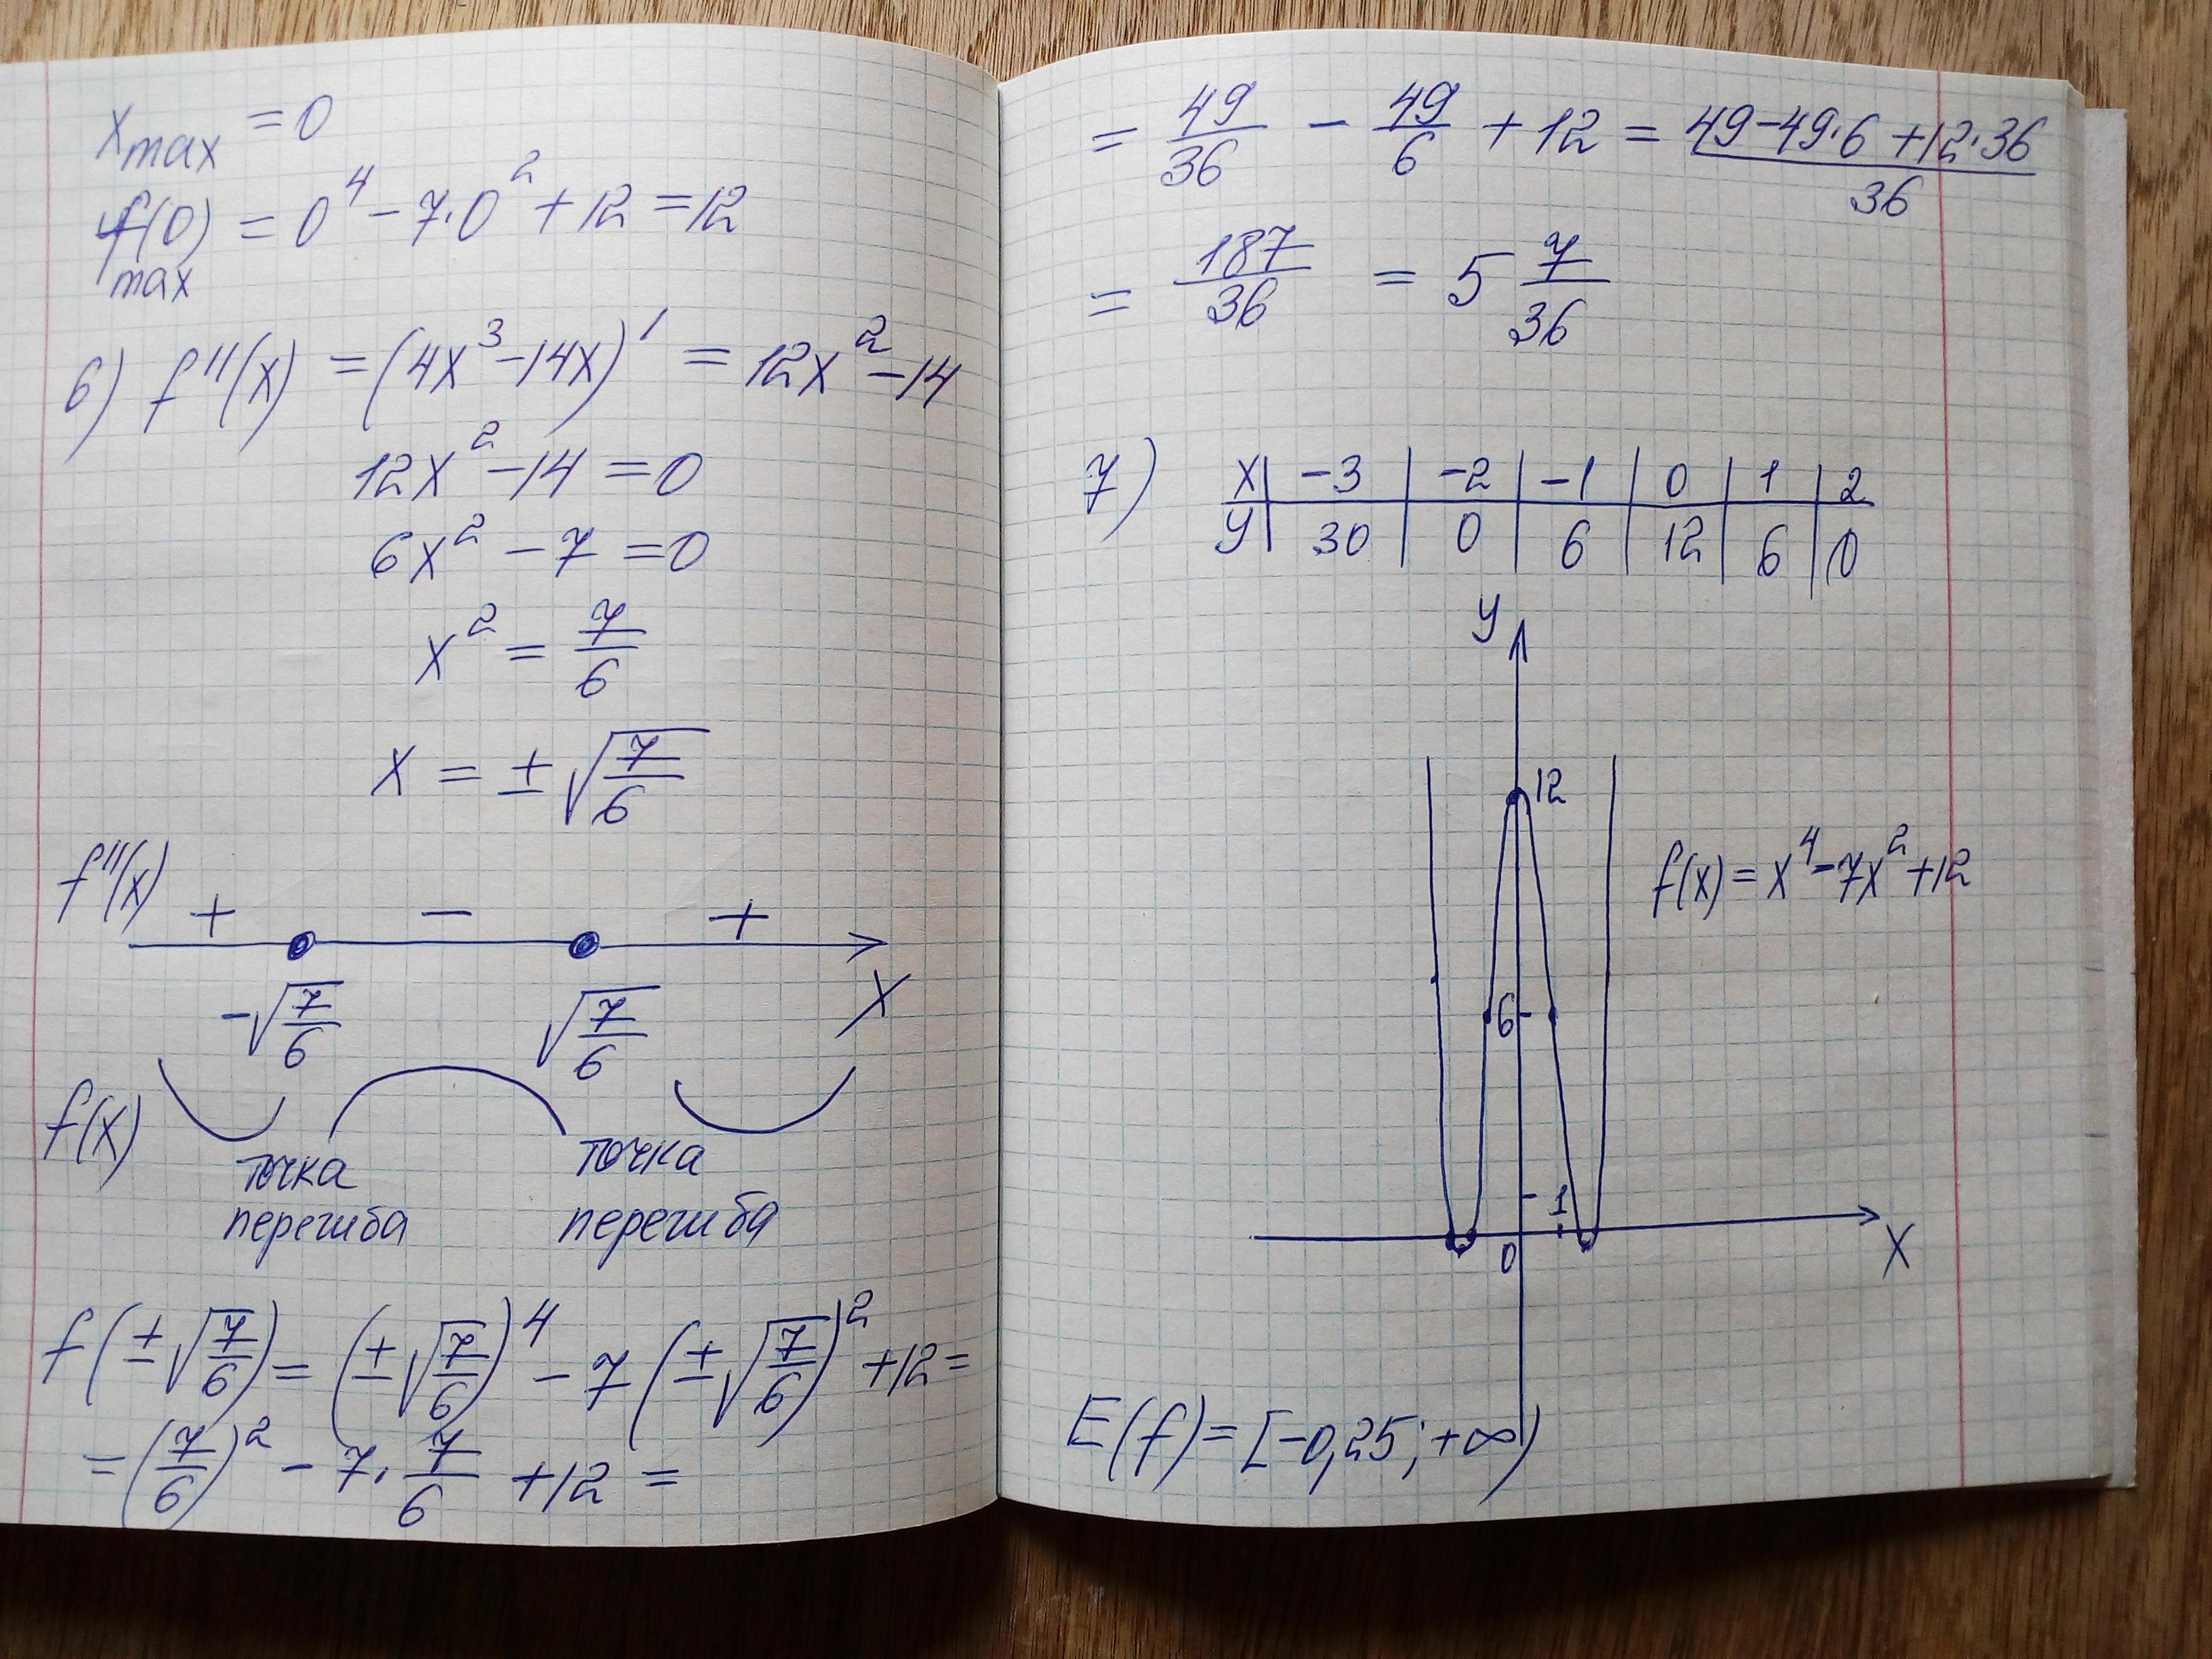 x_max = 0
f(0) = 0⁴ - 7·0² + 12 = 12
max
6) f''(x) = (4x³ - 14x)' = 12x² - 14
12x² - 14 = 0
6x² - 7 = 0
x² = 7/6
x = ± √(7/6)
f''(x)
+ - +
-√(7/6) √(7/6) X
f(x)
точка точка
перегиба перегиба
f(±√(7/6)) = (±√(7/6))⁴ - 7(±√(7/6))² + 12 =
= (7/6)² - 7·7/6 + 12 =
= 49/36 - 49/6 + 12 = (49 - 49·6 + 12·36)/36
= 187/36 = 5 7/36
7) x | -3 | -2 | -1 | 0 | 1 | 2
y | 30 | 0 | 6 | 12 | 6 | 0
y
12
f(x) = x⁴ - 7x² + 12
6
1
0 X
E(f) = [-0,25; +∞)